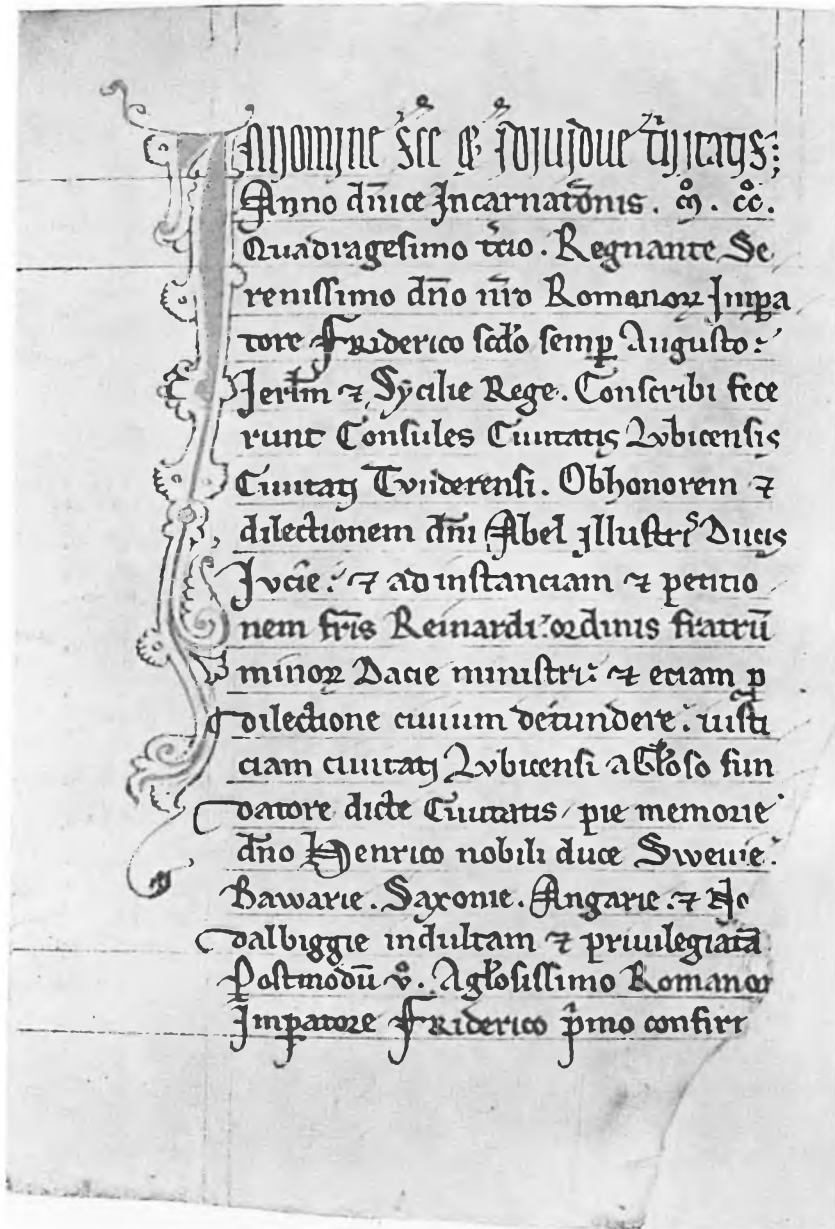 In nomine sce & indiuidue t̾nitatis;
Anno dn̄ice Incarnat̄onis . m̊ . cc̊ .
Quadragesimo t̾cio . Regnante Se
renissimo dn̄o nr̄o Romanoꝝ Imꝑa
tore Friderico scd̄o semꝑ Augusto :
Jerl̄m ⁊ Sycilie Rege . Conscribi fece
runt Consules Ciuitatis Lvbicensis
Ciuitati Tvnderensi . Obhonorem ⁊
dilectionem dn̄i Abel illustris Ducis
Jvcie : ⁊ ad instanciam ⁊ petitio
nem fr̄is Reinardi : ordinis fratrū
minoꝝ Dacie ministri : ⁊ etiam ꝑ
dilectione ciuium detundere : iusti
ciam ciuitati Lvbicensi a Gl̄oso fun
datore dicte Ciuitatis / pie memorie
dn̄o Henrico nobili duce Swewie .
Bawarie . Saxonie . Angarie . ⁊ No
dalbiggie indultam ⁊ priuilegiatā
Postmodū v̊ . A gl̄osissimo Romanoꝝ
Imꝑatore Friderico pͥmo confir